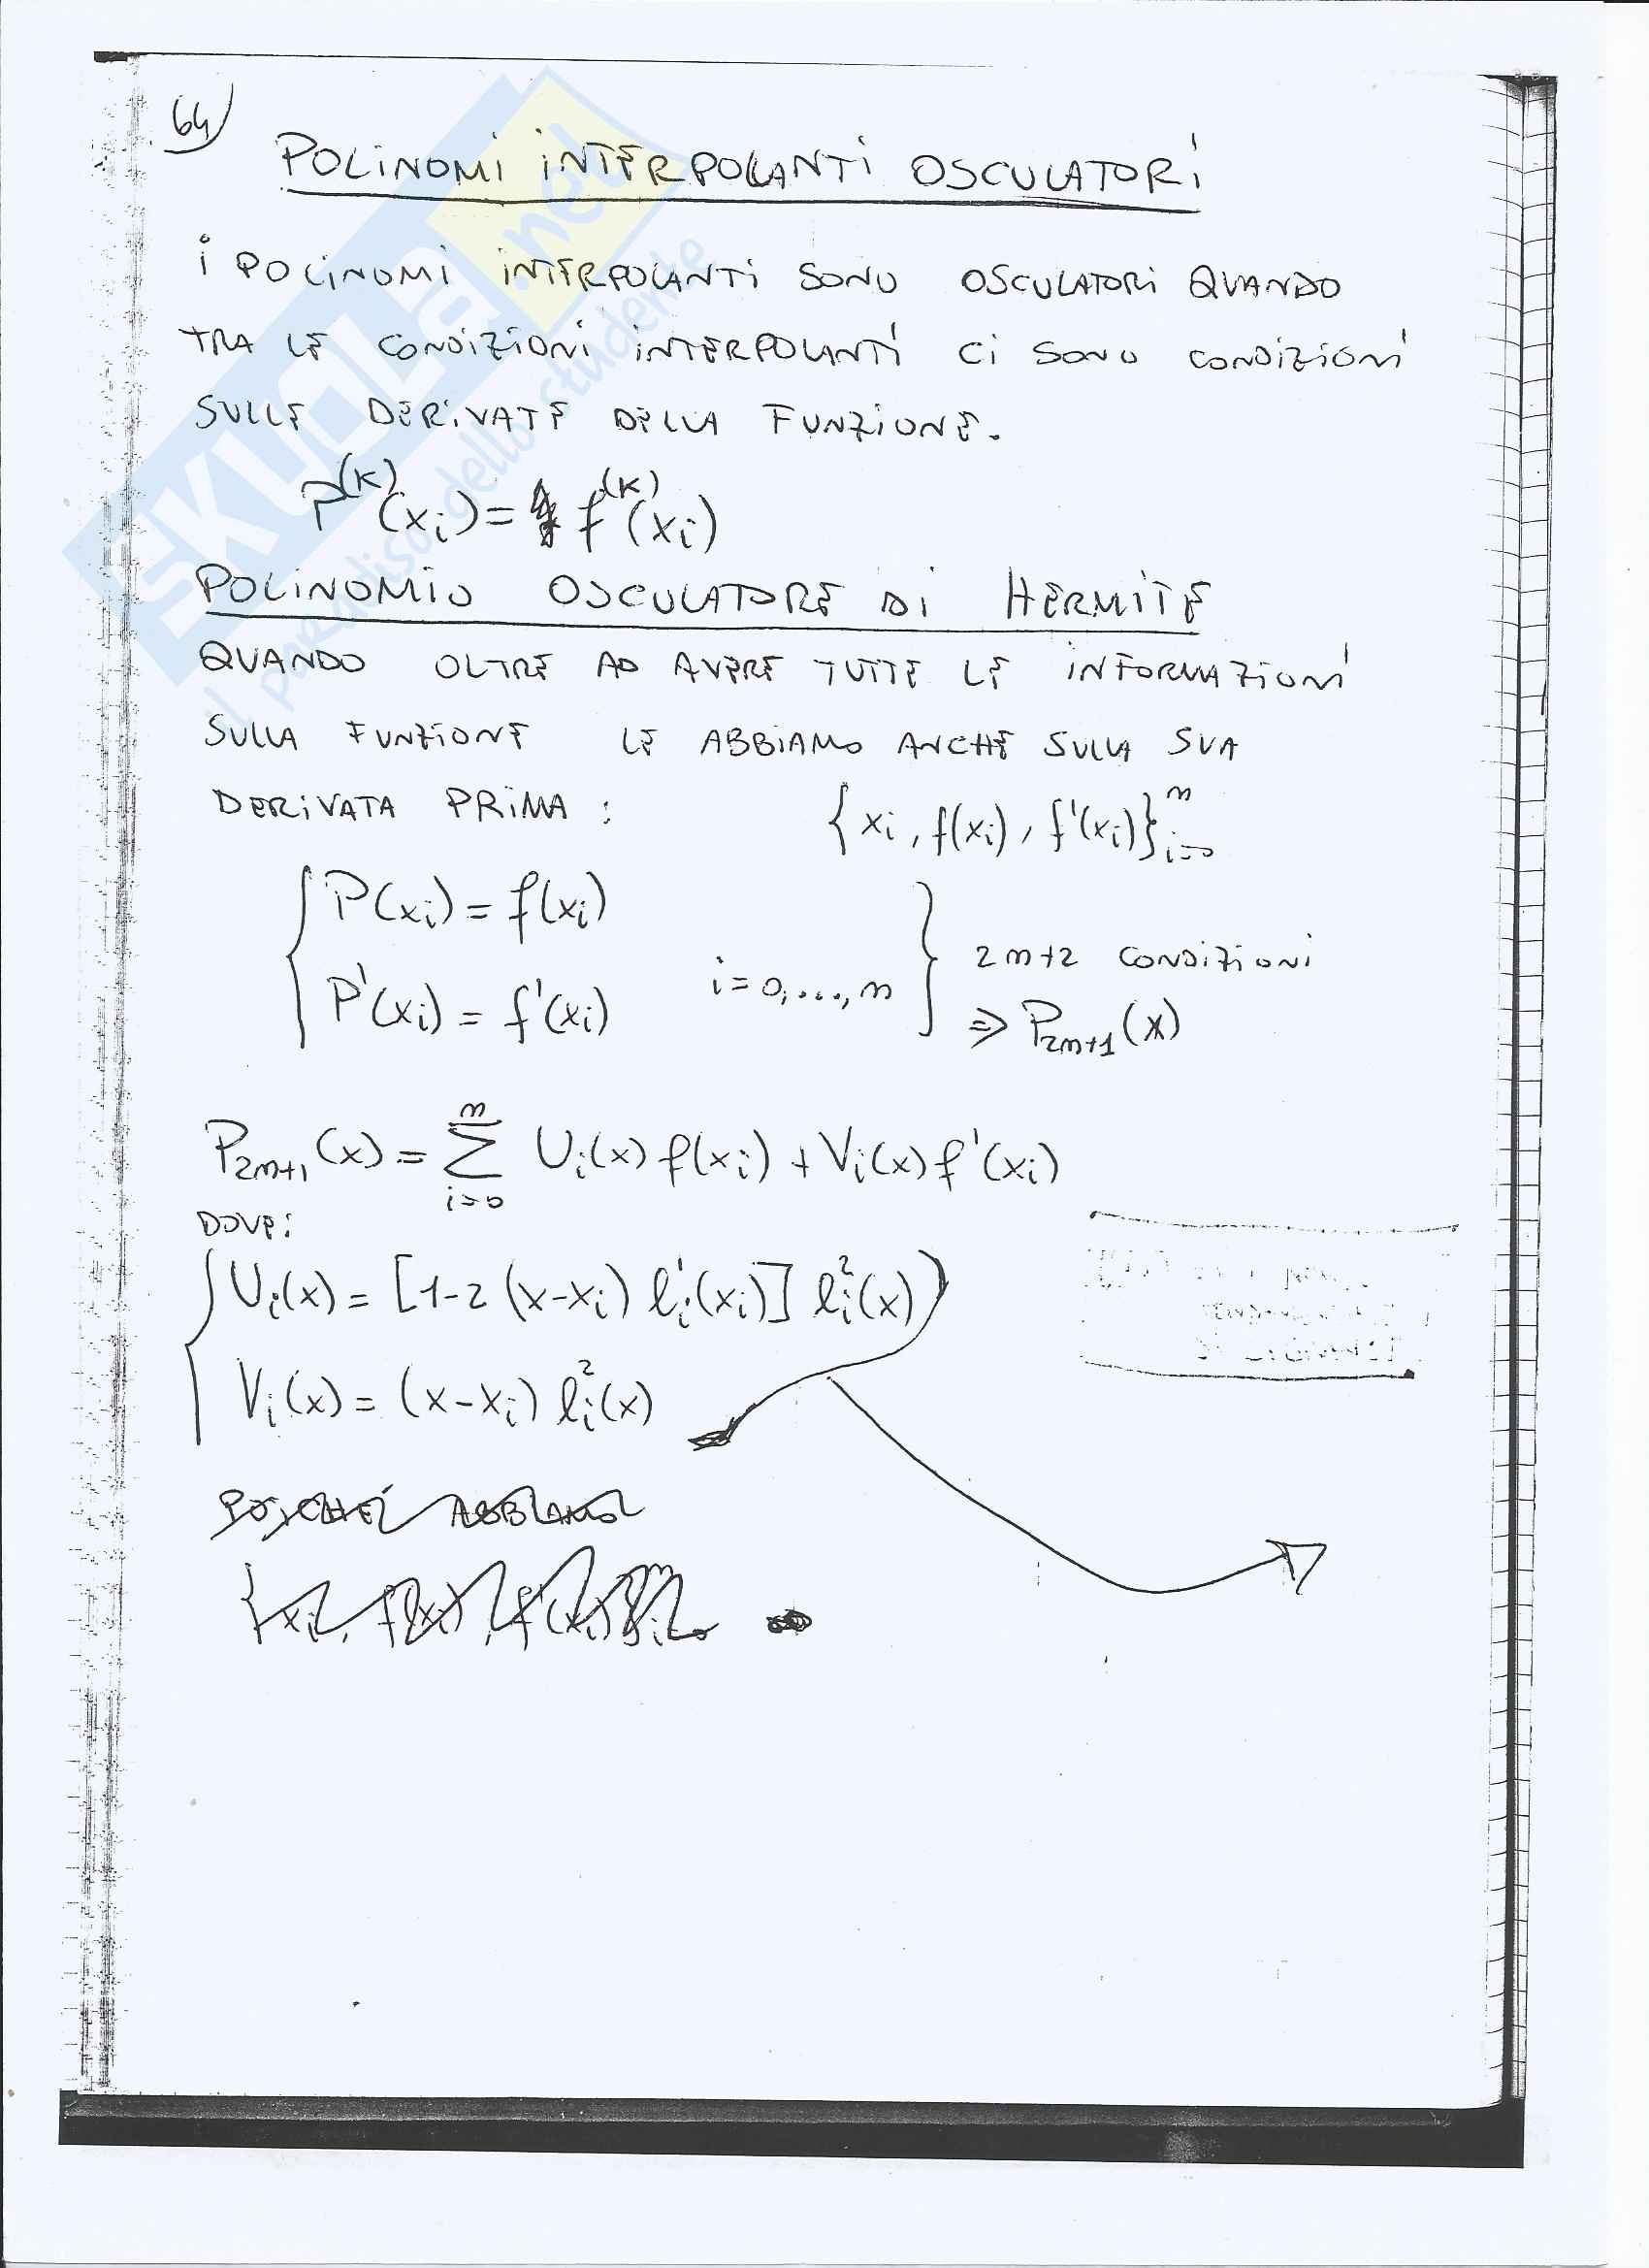 64)
POLINOMI INTERPOLANTI OSCULATORI
I POLINOMI INTERPOLANTI SONO OSCULATORI QUANDO
TRA LE CONDIZIONI INTERPOLANTI CI SONO CONDIZIONI
SULLE DERIVATE DELLA FUNZIONE.
P^(K)(xi) = f^(K)(xi)
POLINOMIO OSCULATORE DI HERMITE
QUANDO OLTRE AD AVERE TUTTE LE INFORMAZIONI
SULLA FUNZIONE LE ABBIAMO ANCHE SULLA SUA
DERIVATA PRIMA : {xi, f(xi), f'(xi)}_{i=0}^{m}
P(xi) = f(xi)
P'(xi) = f'(xi) i=0,...,m } 2m+2 CONDIZIONI
⇒ P_{2m+1}(x)
P_{2m+1}(x) = Σ_{i=0}^{m} Ui(x) f(xi) + Vi(x) f'(xi)
DOVE:
Ui(x) = [1-2(x-xi) li'(xi)] li²(x)
Vi(x) = (x-xi) li²(x)
POICHÉ ABBIAMO
{xi, f(xi), f'(xi)}_{i=0}^{m}
SKUOLA.net
il paradiso dello studente